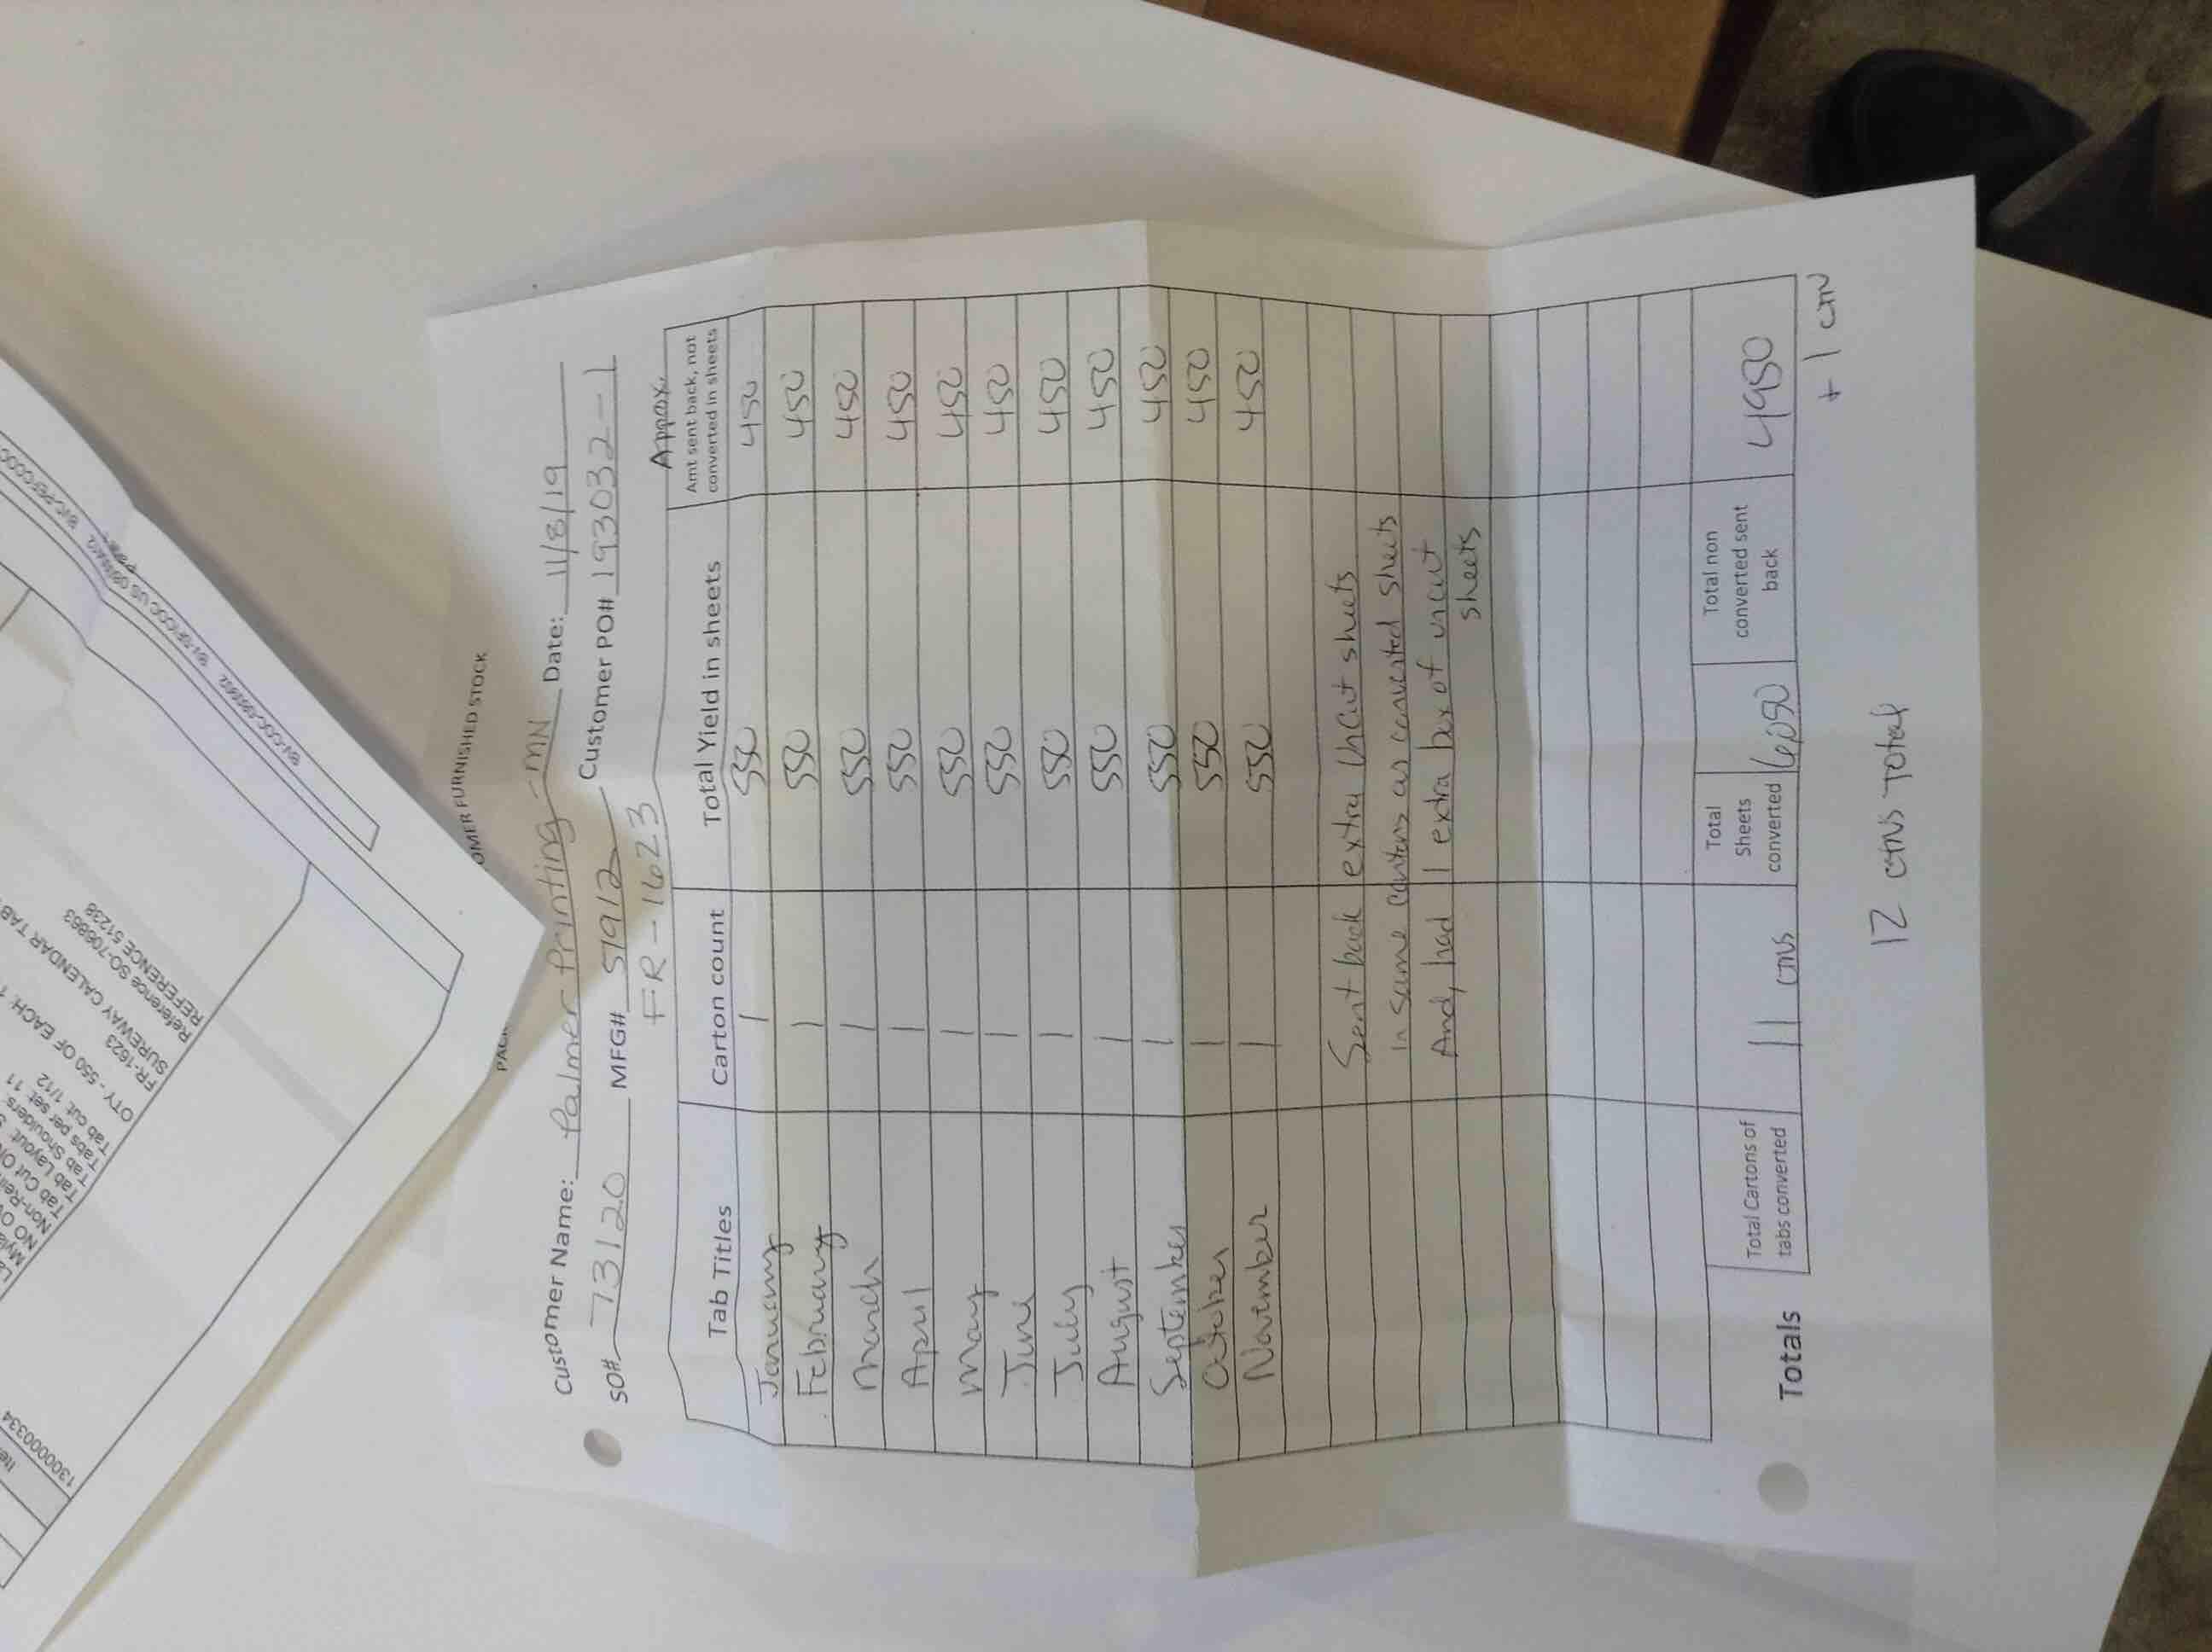 OMER FURNISHED STOCK
Customer Name: Palmer Printing - MN Date: 11/8/19
SO# 73120 MFG# 57912 Customer PO# 193032-1
FR-1623
Appox.
Tab Titles Carton count Total Yield in sheets Amt sent back, not converted in sheets
January 1 550 450
February 1 550 450
March 1 550 450
April 1 550 450
May 1 550 450
June 1 550 450
July 1 550 450
August 1 550 450
September 1 550 450
October 1 550 450
November 1 550 450
Sent back extra uncut sheets
in same cartons as converted sheets
And, had 1 extra box of uncut
sheets
Totals Total Cartons of tabs converted 11 ctns Total Sheets converted 6,050 Total non converted sent back 4950
+ 1 ctn
12 ctns total
1300000334
FR-1623
SUREWAY CALENDAR TAB
Reference SO-706863
REFERENCE 51238
QTY - 550 OF EACH:
Tab cut: 1/12
Tabs per set: 11
Tab Shoulders:
Tab Layout:
Tab Cut